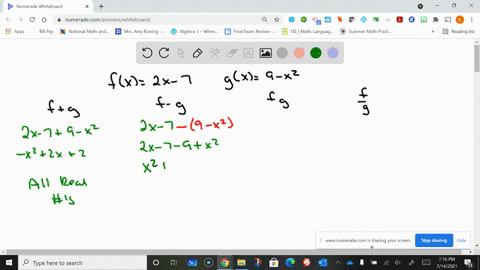 Numerade Whiteboard
numerade.com/answers/whiteboard/
Apps
Bill Pay
National Math and...
Mrs. Amy Koning -...
Algebra 1 – Wheen...
Final Exam Review -...
IXL | Math, Language...
Summer Math Practi...
f(x)= 2x-7 g(x)= 9-x²
f+g f-g fg f/g
2x-7+9-x² 2x-7-(9-x²)
-x²+2x+2 2x-7-9+x²
x²+
All Real
#'s
www.numerade.com is sharing your screen.
Stop sharing
Hide
Type here to search
7:16 PM
7/14/2021